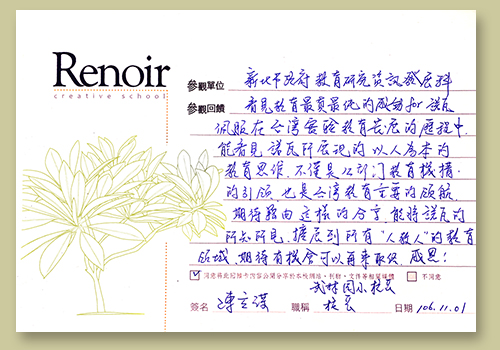 Renoir
creative school
參觀單位 新北市政府教育研究資訊發展科
參觀回饋 看見教育最真最他的感動和諾瓦
佩服在台灣實驗教育長展的歷程中,
能看見諾瓦所展現的以人為本的
教育思維,不僅是公部門教育機構
的引領,也是台灣教育重要的領航
期待藉由這樣的分享,能將諾瓦的
所知所見,擴展到所有"人教人"的教育
領域,期待有機會可以再來取經,感恩!
同意將此回饋卡內容公開分享於本校網站、刊物、文件等相關媒體 不同意
武林國小校長
簽名 陳立祺 職稱 校長 日期 106.11.01